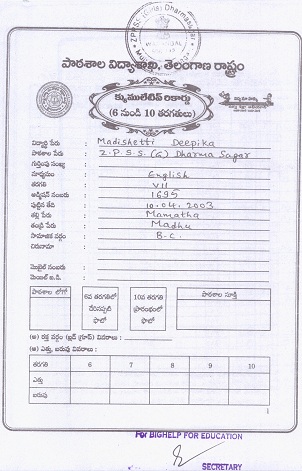 ZPHSS (Girls) Dharmasagar
పాఠశాల విద్యాశాఖ, తెలంగాణ రాష్ట్రం
క్యుములేటివ్ రికార్డు
(6 నుండి 10 తరగతులు)
విద్యార్థి పేరు : Madishetti Deepika
పాఠశాల పేరు : Z.P.S.S. (G) Dharma Sagar
గుర్తింపు సంఖ్య :
మాధ్యమం : English
తరగతి : VII
అడ్మిషన్ నంబరు : 1695
పుట్టిన తేది : 10.04.2003
తల్లి పేరు : Mamatha
తండ్రి పేరు : Madhu
సామాజిక వర్గం : B.C.
చిరునామా :
మొబైల్ నంబరు :
మెయిల్ ఐ.డి. :
పాఠశాల లోగో
6వ తరగతిలో చేరినప్పటి ఫొటో
10వ తరగతి ప్రారంభంలో ఫొటో
పాఠశాల సూక్తి
(అ) రక్త వర్గం (బ్లడ్ గ్రూప్) వివరాలు :
(ఆ) ఎత్తు, బరువు వివరాలు :
తరగతి 6 7 8 9 10
ఎత్తు
బరువు
1
For BIGHELP FOR EDUCATION
SECRETARY